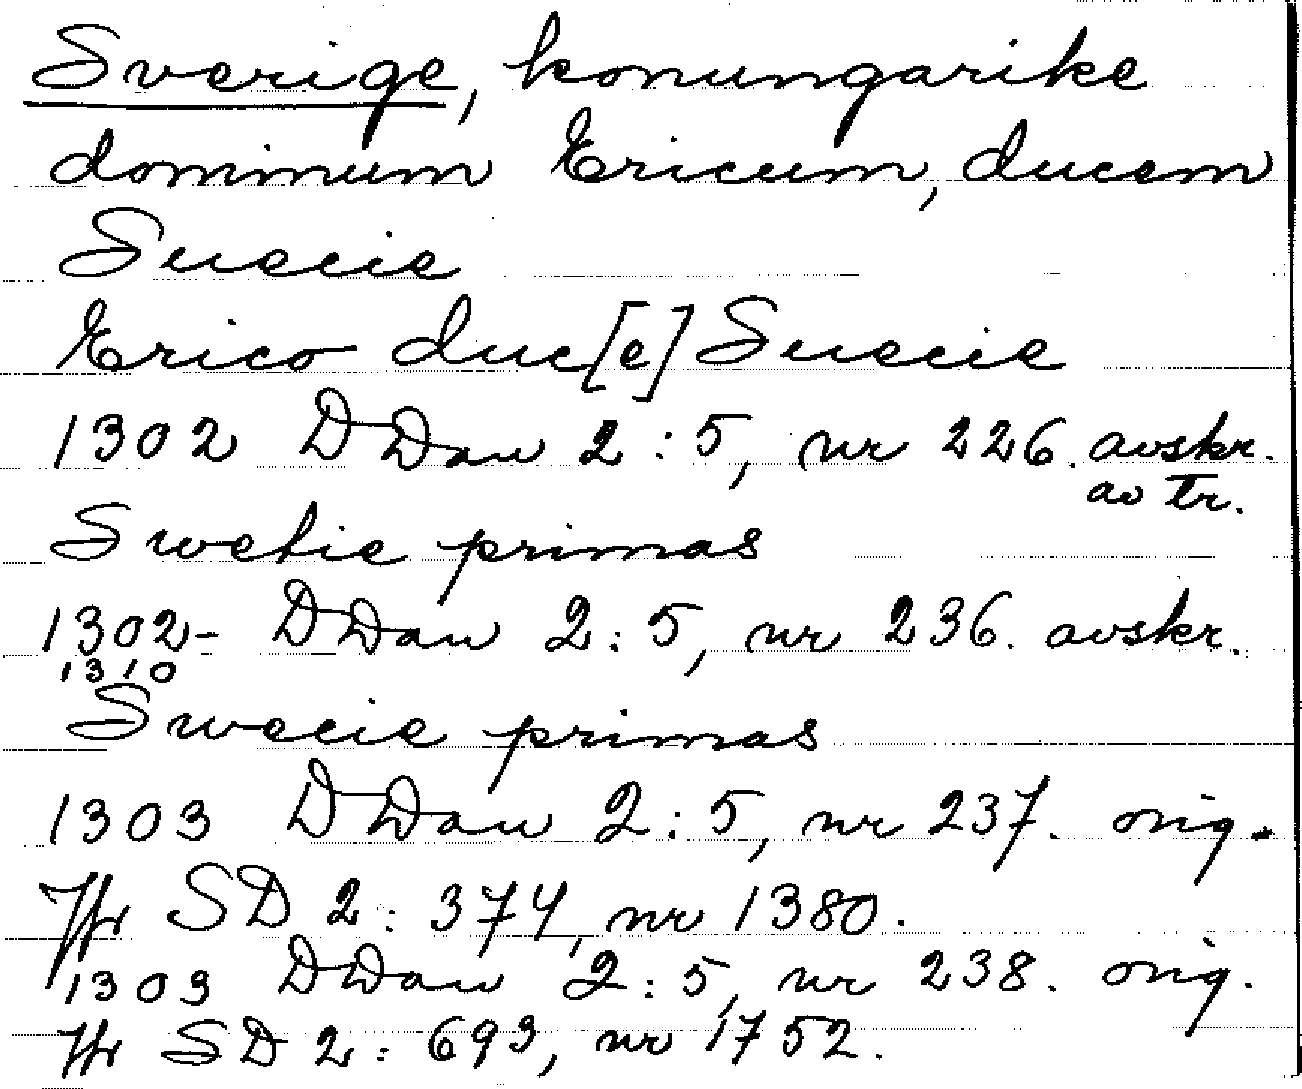 Sverige, konungarike
dominum Ericum, ducem
Suecie
Erico duc[e] Suecie
1302 DDan 2:5, nr 226. avskr.
av tr.
Swetie primas
1302- DDan 2:5, nr 236. avskr.
1310
Swecie primas
1303 DDan 2:5, nr 237. orig.
Jfr SD 2: 374, nr 1380.
1303 DDan 2:5, nr 238. orig.
Jfr SD 2: 693, nr 1752.